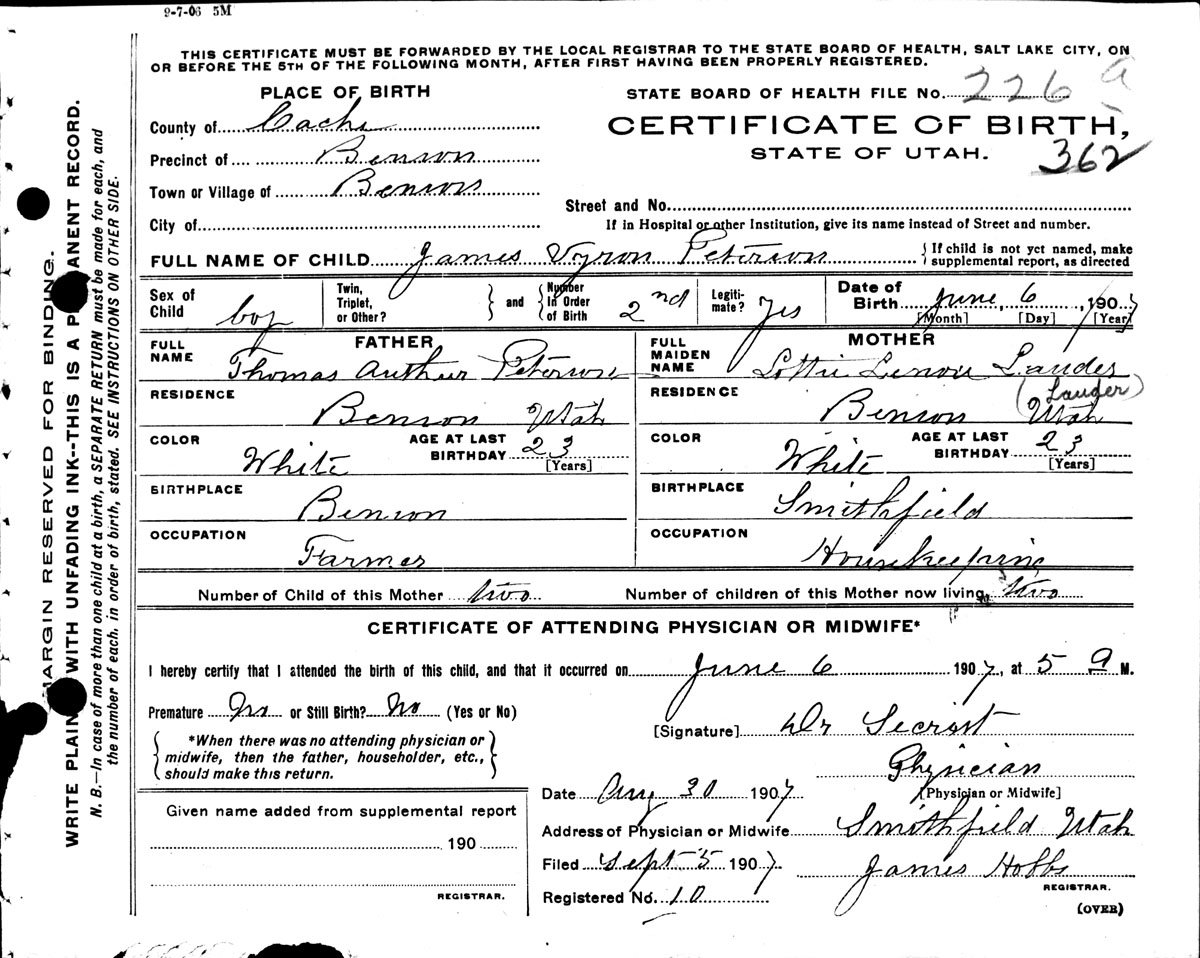 9-7-06 5M
THIS CERTIFICATE MUST BE FORWARDED BY THE LOCAL REGISTRAR TO THE STATE BOARD OF HEALTH, SALT LAKE CITY, ON
OR BEFORE THE 5TH OF THE FOLLOWING MONTH, AFTER FIRST HAVING BEEN PROPERLY REGISTERED.
PLACE OF BIRTH
STATE BOARD OF HEALTH FILE No. 226 a
County of Cache
CERTIFICATE OF BIRTH,
Precinct of Benson
STATE OF UTAH. 362
Town or Village of Benson
Street and No.
City of
If in Hospital or other Institution, give its name instead of Street and number.
FULL NAME OF CHILD James Vyron Peterson { If child is not yet named, make
supplemental report, as directed
Sex of Child boy
Twin, Triplet, or Other? } and { Number In Order of Birth 2nd
Legitimate? Yes
Date of Birth June 6, 1907
[Month] [Day] [Year]
FATHER
FULL NAME Thomas Arthur Peterson
RESIDENCE Benson Utah
COLOR White AGE AT LAST BIRTHDAY 23 [Years]
BIRTHPLACE Benson
OCCUPATION Farmer
MOTHER
FULL MAIDEN NAME Lottie Lenora Lauder
(Lauder)
RESIDENCE Benson Utah
COLOR White AGE AT LAST BIRTHDAY 23 [Years]
BIRTHPLACE Smithfield
OCCUPATION Housekeeping
Number of Child of this Mother two Number of children of this Mother now living two
CERTIFICATE OF ATTENDING PHYSICIAN OR MIDWIFE*
I hereby certify that I attended the birth of this child, and that it occurred on June 6 1907, at 5 a M.
Premature No or Still Birth? No (Yes or No)
[Signature] Dr Secrist
{ *When there was no attending physician or
midwife, then the father, householder, etc.,
should make this return. }
Physician
[Physician or Midwife]
Date Aug 30 1907
Given name added from supplemental report
Address of Physician or Midwife Smithfield Utah
190
Filed Sept 5 1907 James Hobbs
REGISTRAR.
Registered No. 10
REGISTRAR.
(OVER)
MARGIN RESERVED FOR BINDING.
WRITE PLAIN WITH UNFADING INK--THIS IS A P ANENT RECORD.
N. B.—In case of more than one child at a birth, a SEPARATE RETURN must be made for each, and
the number of each, in order of birth, stated. SEE INSTRUCTIONS ON OTHER SIDE.